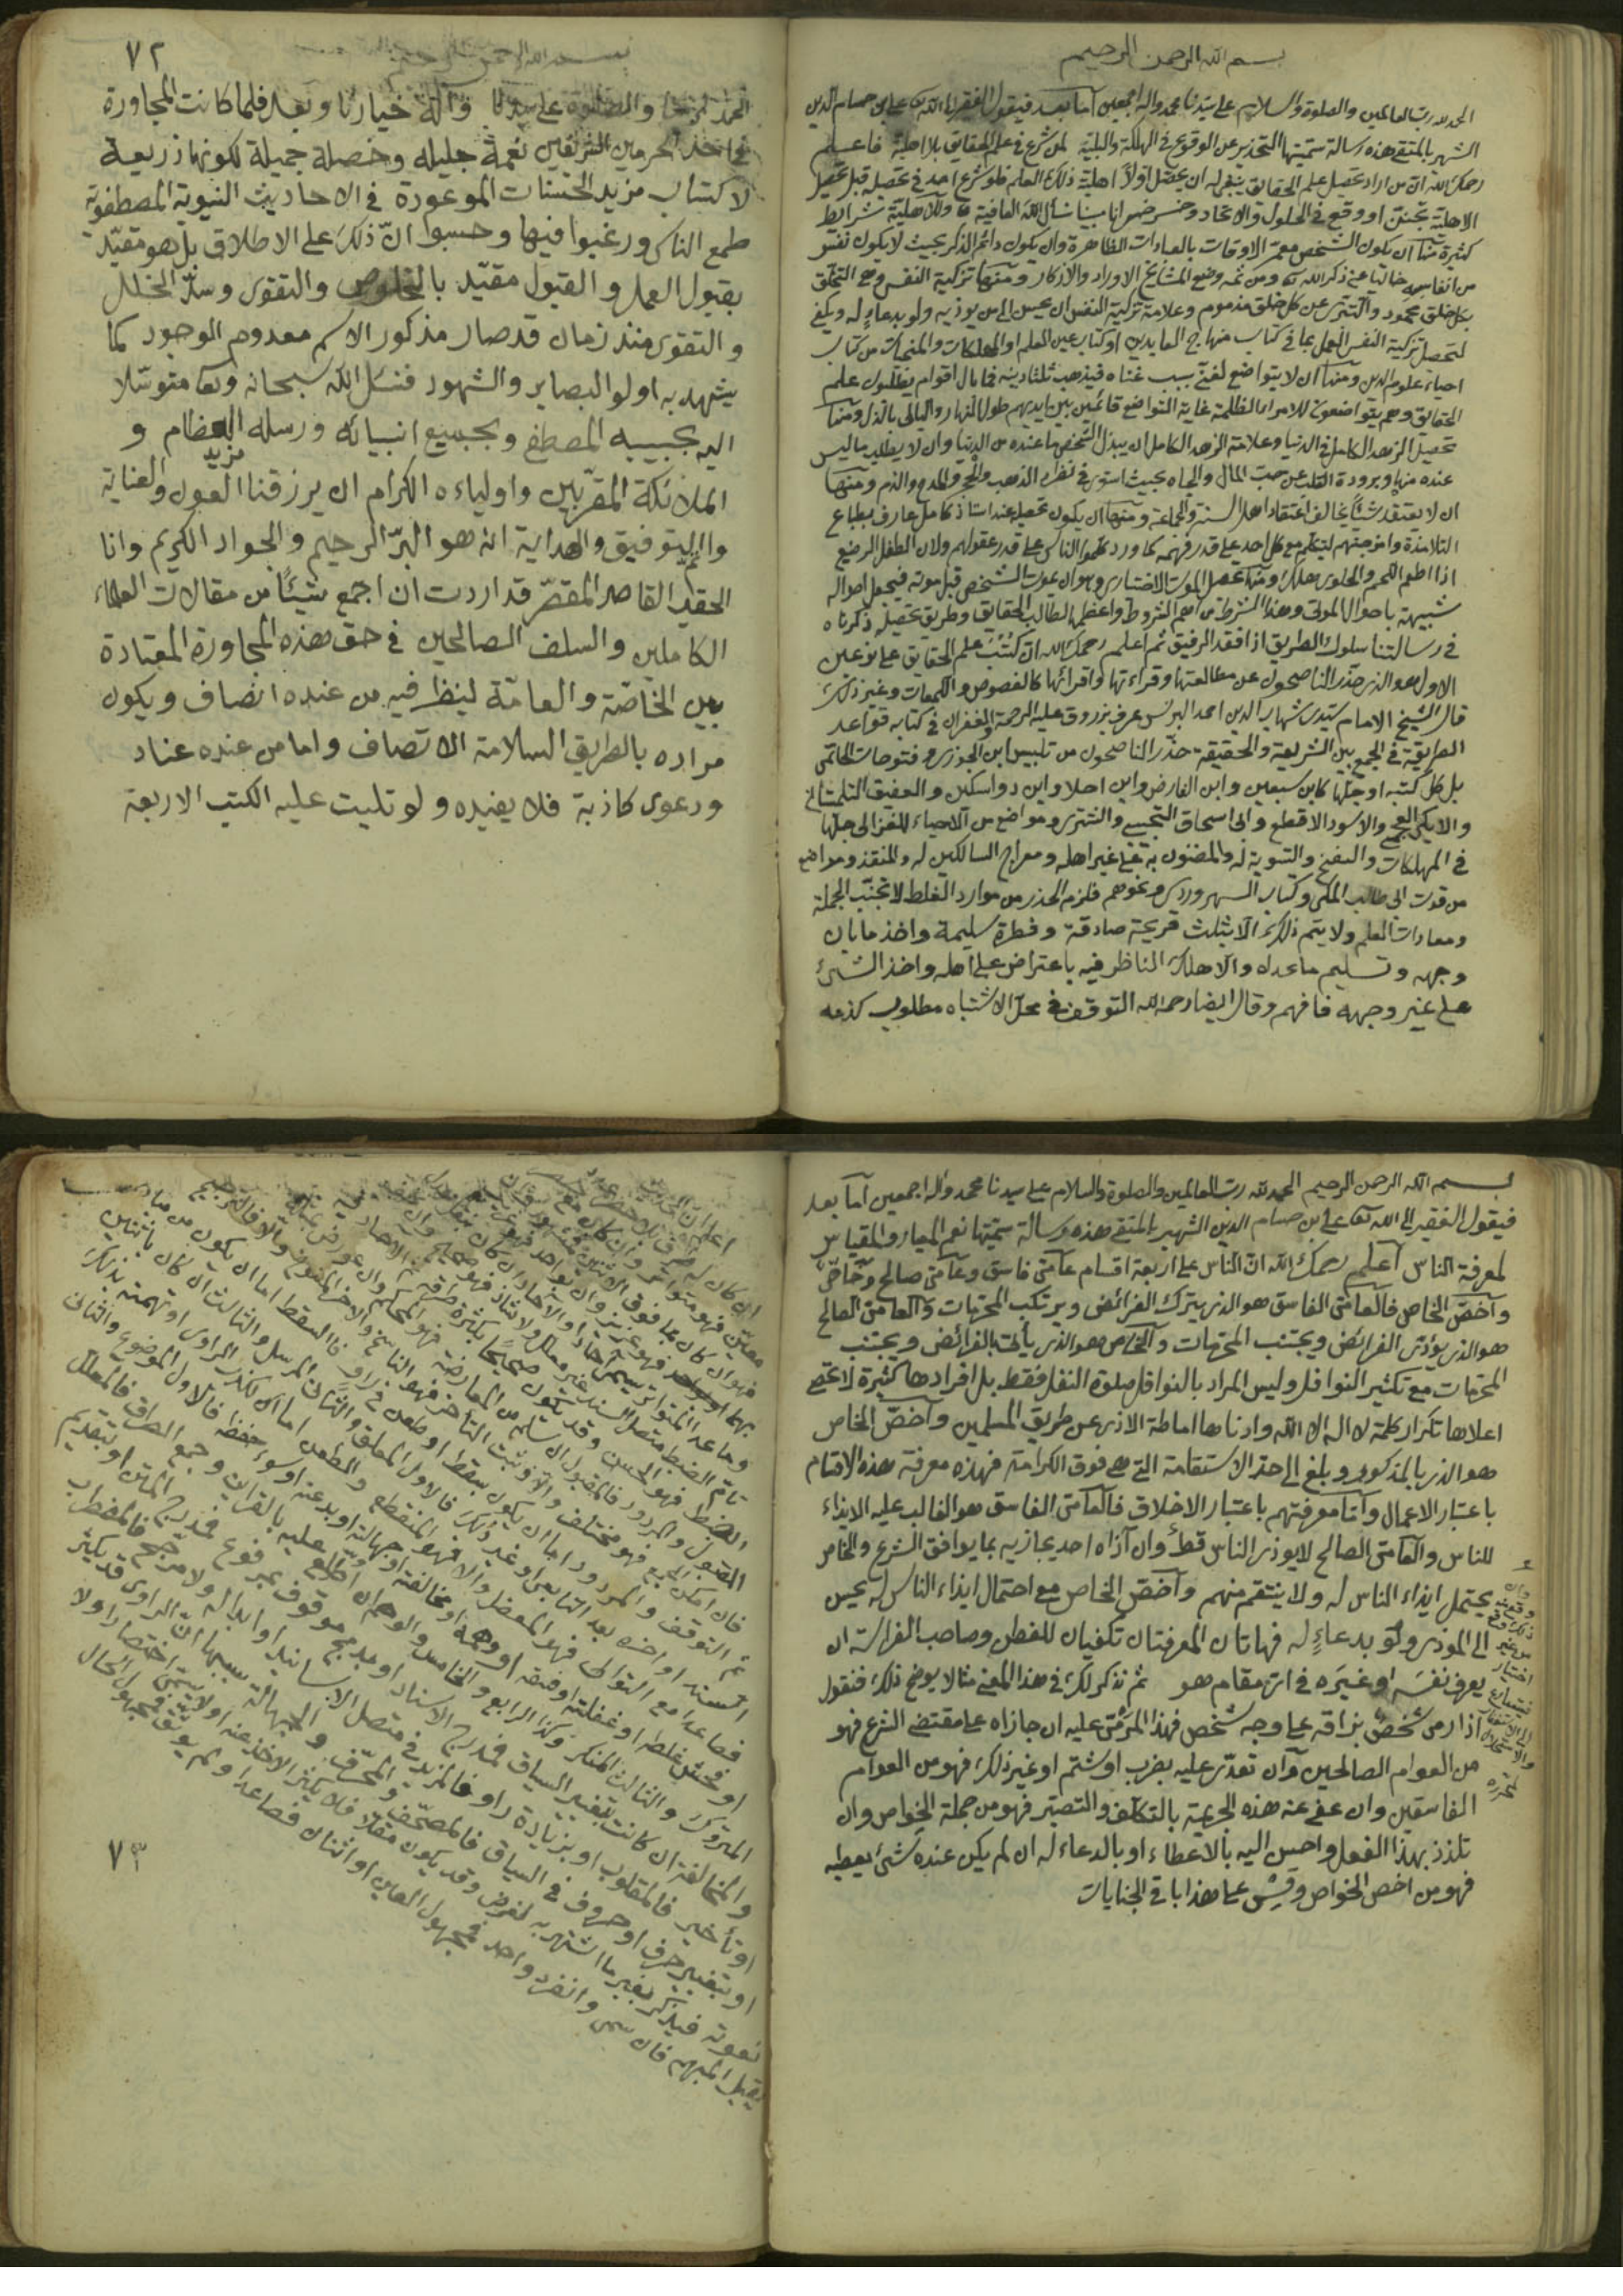 بسم الله الرحمن الرحيم
الحمد لله رب العالمين والصلوة والسلام على سيدنا محمد واله اجمعين اما بعد فيقول الفقير الى الله تعالى على بن حسام الدين
الشهير بالمتقى هذه رسالة سميتها التحذير عن الوقوع فى الهلكة والبلية لمن شرع فى علم الحقايق بلا اهلية فاعلم
رحمك الله ان من اراد تحصيل علم الحقايق ينبغى له ان يحصل اولاً اهلية ذلك العلم فلو شرع احد فى تحصيله قبل تحصيل
الاهلية تجنن او وقع فى الحلول والاتحاد وخسر خسرانا مبينا نسأل الله العافية وللاهلية شرايط
كثيرة منها ان يكون الشخص معمر الاوقات بالعبادات الظاهرة وان يكون دائم الذكر بحيث لا يكون نفس
من انفاسه خاليا عن ذكر الله تعالى ومن ثمه وضع المشايخ الاوراد والاذكار ومنها تزكية النفس وهى التخلق
بكل خلق محمود والتبرى عن كل خلق مذموم وعلامة تزكية النفس ان يحسن الى من يوذيه ولو بدعاءٍ له ويكفى
لتحصيل تزكية النفس العمل بما فى كتاب منهاج العابدين او كتاب عين العلم او المهلكات والمنجيات من كتاب
احياء علوم الدين ومنها ان لا يتواضع لغنى بسبب غناه فيذهب ثلثا دينه فما بال اقوام يطلبون علم
الحقايق وهم يتواضعون للامراء الظلمة غاية التواضع قائمين بين ايديهم طول النهار والليالى بالذل ومنها
تحصيل الزهد الكامل فى الدنيا وعلامة الزهد الكامل ان يبذل الشخص ما عنده من الدنيا وان لا يطلب ما ليس
عنده منها وبرودة القلب عن حب المال والجاه بحيث استوى فى نظره الذهب والحجر والمدح والذم ومنها
ان لا يعتقد شيئا يخالف اعتقاد اهل السنة والجماعة ومنها ان يكون تحصيله عند استاذ كامل عارف بطباع
التلامذة وامزجتهم ليتكلم مع كل احد على قدر فهمه كما ورد كلموا الناس على قدر عقولهم ولان الطفل الرضيع
اذا اطعم اللحم والحلوى هلك ومنها تحصيل الموت الاختيارى وهو ان يموت الشخص قبل موته فيجعل احواله
شبيهة باحوال الموتى وهذا الشرط من اهم الشروط واعظمها لطالب الحقايق وطريق تحصيله ذكرناه
فى رسالتنا سلوك الطريق اذا فقد الرفيق ثم اعلم رحمك الله ان كتب علم الحقايق على نوعين
الاول هو الذى حذر الناصحون عن مطالعتها وقراءتها واقرائها كالفصوص واللمعات وغير ذلك
قال الشيخ الامام سيدى شهاب الدين احمد البرنس عرف بزروق عليه الرحمة والغفران فى كتابه قواعد
الطريقة فى الجمع بين الشريعة والحقيقة حذر الناصحون من تلبيس ابن الجوزى وفتوحات الحاتمى
بل كل كتبه او جلها كابن سبعين وابن الفارض وابن احلا وابن دواسكين والعفيف التلمسانى
والايكى العجمى والاسود الاقطع وابى اسحاق التجيبى والششترى ومواضع من الاحياء للغزالى جلها
فى المهلكات والنفخ والتسوية له والمضنون به على غير اهله ومعراج السالكين له والمنقذ ومواضع
من قوت ابى طالب المكى وكتاب السهروردى ونحوهم فلزم الحذر من موارد الغلط لا تجنب الجملة
ومعادات العلم ولا يتم ذلك الا بثلث قريحة صادقة وفطرة سليمة واخذ ما بان
وجهه وتسليم ما عداه والا هلك الناظر فيه باعتراض على اهله واخذ الشئ
على غير وجهه فافهم وقال ايضا رحمه الله التوقف فى محل الاشتباه مطلوب كعدمه
٧٢
بسم الله الرحمن الرحيم
الحمد لمرضا والصلوة على سيدنا وآله خيارنا وبعد فلما كانت المجاورة
فى احد الحرمين الشريفين نعمة جليلة وخصلة جميلة لكونها ذريعة
لاكتساب مزيد الحسنات الموعودة فى الاحاديث النبوية المصطفوية
طمع الناس ورغبوا فيها وحسبوا ان ذلك على الاطلاق بل هو مقيد
بقبول العمل والقبول مقيد بالخلوص والتقوى وسد الخلل
والتقوى منذ زمان قد صار مذكور الاسم معدوم الوجود كما
يشهد به اولو البصاير والشهود فنسئل الله سبحانه وتعالى متوسلا
اليه بحبيبه المصطفى وبجميع انبيائه ورسله العظام و
الملائكة المقربين واولياءه الكرام ان يرزقنا مزيد العون والعناية
والتوفيق والهداية انه هو البر الرحيم والجواد الكريم وانا
الحقير القاصر المقصر قد اردت ان اجمع شيئًا من مقالات العلماء
الكاملين والسلف الصالحين فى حق هذه المجاورة المعتادة
بين الخاصة والعامة لينظر فيه من عنده انصاف ويكون
مراده بالطريق السلامة الاتصاف واما من عنده عناد
ودعوى كاذبة فلا يفيده ولو تليت عليه الكتب الاربعة
بسم الله الرحمن الرحيم الحمد لله رب العالمين والصلوة والسلام على سيدنا محمد واله اجمعين اما بعد
فيقول الفقير الى الله تعالى على ابن حسام الدين الشهير بالمتقى هذه رسالة سميتها نعم المعيار والمقياس
لمعرفة الناس اعلم رحمك الله ان الناس على اربعة اقسام عامى فاسق وعامى صالح وخاص
واخص الخاص فالعامى الفاسق هو الذى يترك الفرائض ويرتكب المحرمات والعامى الصالح
هو الذى يؤدى الفرائض ويجتنب المحرمات والخاص هو الذى يأتى بالفرائض ويجتنب
المحرمات مع تكثير النوافل وليس المراد بالنوافل صلوة النفل فقط بل افرادها كثيرة لا تحصى
اعلاها تكرار كلمة لا اله الا الله وادناها اماطة الاذى عن طريق المسلمين واخص الخاص
هو الذى بالمذكور وبلغ الى حد الاستقامة التى هى فوق الكرامة فهذه معرفة هذه الاقسام
باعتبار الاعمال واما معرفتهم باعتبار الاخلاق فالعامى الفاسق هو الغالب عليه الايذاء
للناس والعامى الصالح لا يوذى الناس قط وان آذاه احد يجازيه بما يوافق الشرع والخاص
يحتمل ايذاء الناس له ولا ينتقم منهم واخص الخاص مع احتمال ايذاء الناس له يحسن
الى الموذى ولو بدعاءٍ له فهاتان المعرفتان تكفيان للفطن وصاحب الفراسة ان
يعرف نفسه او غيره فى اى مقام هو ثم نذكر لك فى هذا المعنى مثالا يوضح ذلك فنقول
اذا رمى شخص بزاقه على وجه شخص فهذا المرمى عليه ان جازاه على مقتضى الشرع فهو
من العوام الصالحين وان تعدى عليه بضرب او شتم او غير ذلك فهو من العوام
الفاسقين وان عفى عنه هذه الجريمة بالتكلف والتصبر فهو من جملة الخواص وان
تلذذ بهذا الفعل واحسن اليه بالاعطاء او بالدعاء له ان لم يكن عنده شئ يعطيه
فهو من اخص الخواص وقس على هذا باقى الجنايات
٧٣
تام الضبط متصل السند غير معلل ولا شاذ فهو
فان امكن الجمع فهو مختلف
ثم التوقف والمردود اما ان يكون بسقط او طعن فى راو فالسقط اما ان يكون من
فصاعدا مع التوالى فهو المعضل والا فهو المنقطع
او فحش غلطه او غفلته او فسقه او وهمه او مخالفته او جهالته او بدعته او سوء حفظه فالاول الموضوع والثانى
المتروك والثالث المنكر وكذا الرابع والخامس والوهم ان اطلع عليه بالقرائن وجمع الطرق فالمعلل
والمخالفة ان كانت بتغيير السياق فمدرج الاسناد او بدمج موقوف بمرفوع فمدرج المتن او بتقديم
او تأخير فالمقلوب او بزيادة راو فالمزيد فى متصل الاسانيد او ابداله ولا مرجح فالمضطرب
او بتغيير حرف او حروف فى السياق فالمصحف والمحرف والجهالة سببها ان الراوى قد يكثر
نعوته فيذكر بغير ما اشتهر به لغرض وقد يكون مقلا فلا يكثر الاخذ عنه او لا يسمى اختصارا ولا
يقبل المبهم فان سمى وانفرد واحد فمجهول العين او اثنان فصاعدا ولم يوثق فمجهول الحال